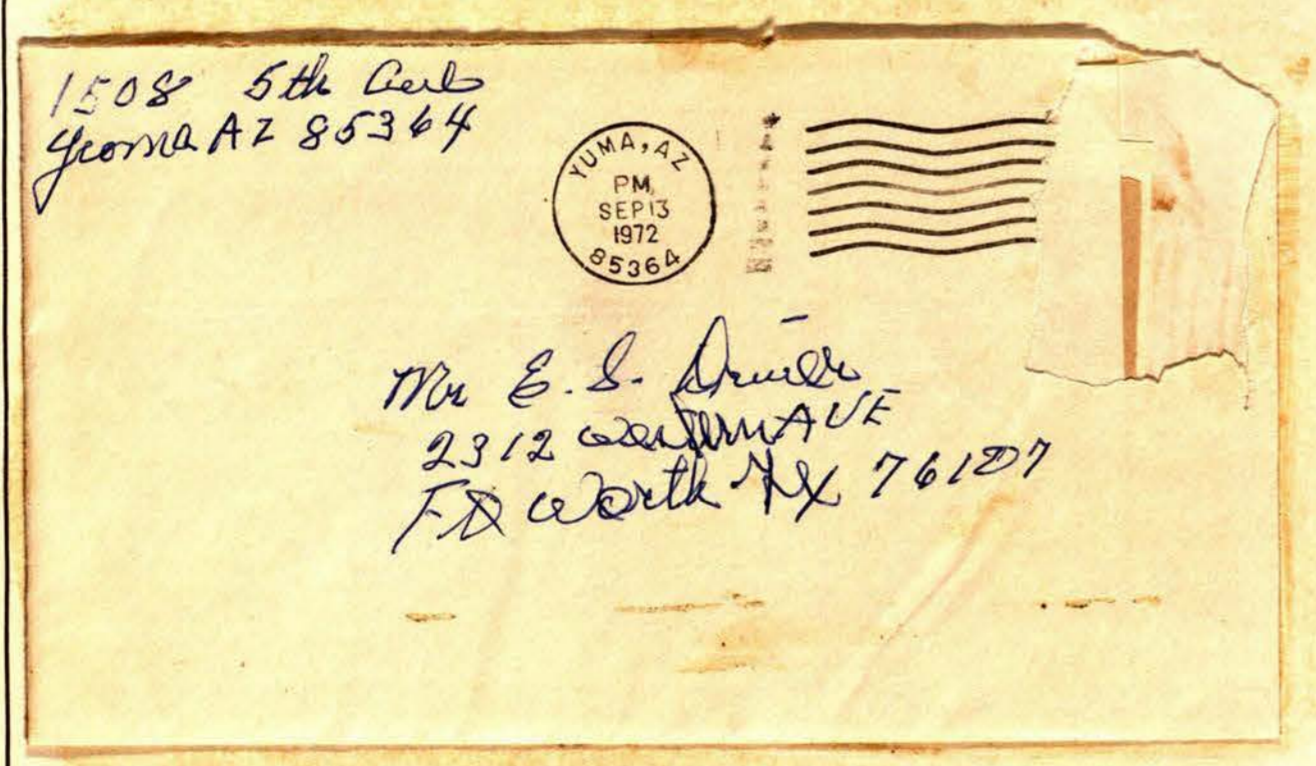 1508 5th Ave
Yuma AZ 85364
YUMA, AZ
PM
SEP 13
1972
85364
Mr E. S.
2312 Western AVE
Ft Worth TX 76107